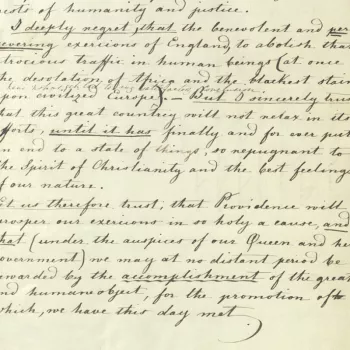 ests of humanity and justice.
I deeply regret, that the benevolent and per
severing exercions of England, to abolish that
trocious traffic in human beings (at once
the desolation of Africa and the blackest stain
upon civilized Europe).— But I sincerely trust
that this great country will not relax in its
efforts, until it has finally and for ever put
an end to a state of things, so repugnant to
the Spirit of Christianity and the best feelings
of our nature.
Let us therefore trust, that Providence will
prosper our exercions in so holy a cause, and
that (under the auspices of our Queen and her
Government) we may at no distant period be
rewarded by the accomplishment of the great
and humane object, for the promotion of
which, we have this day met.